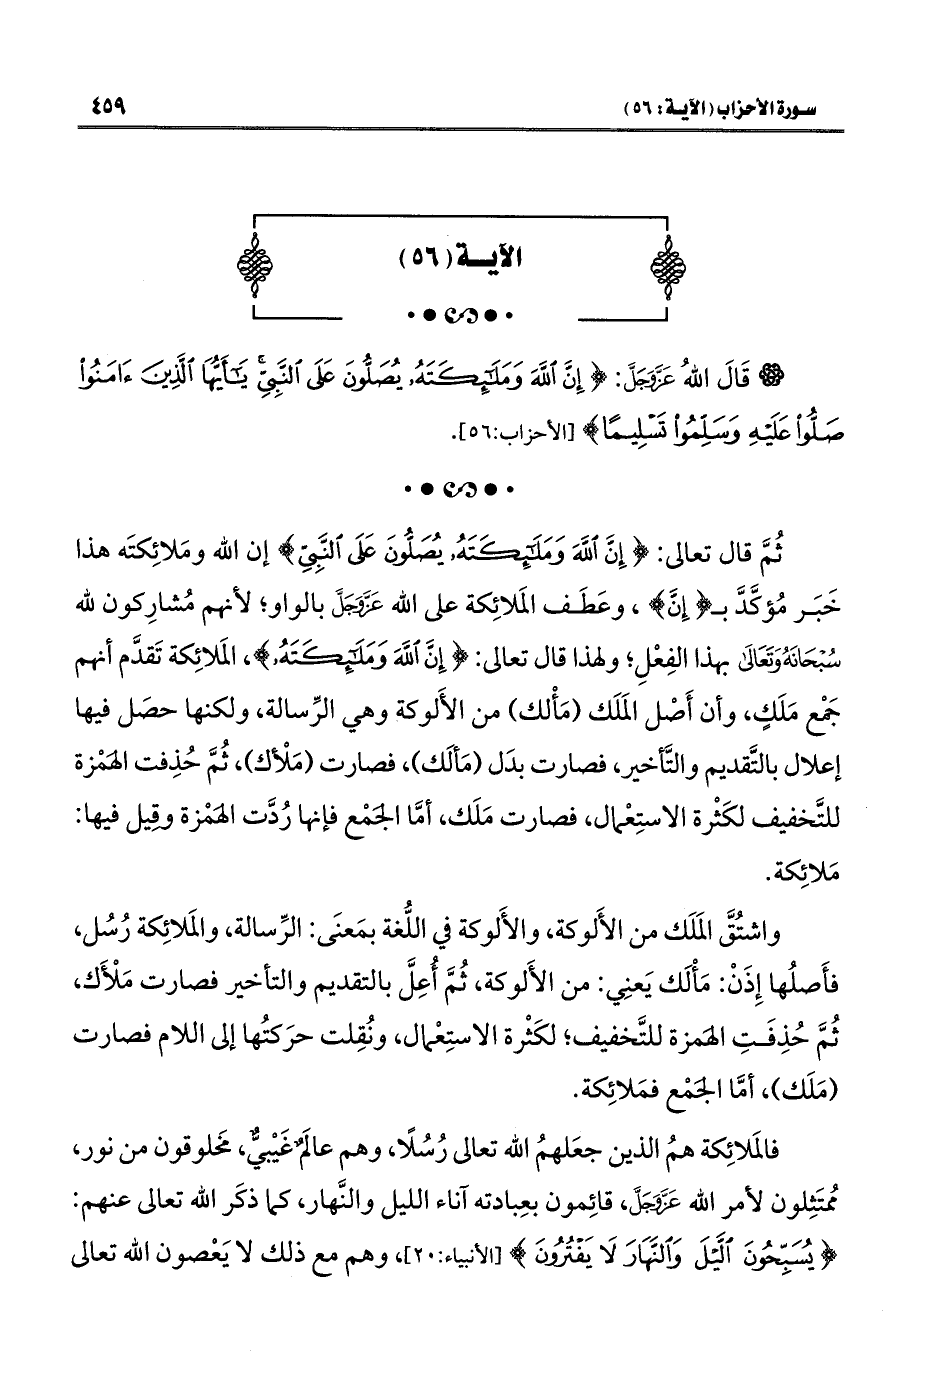 سورة الأحزاب (الآية: ٥٦)
٤٥٩
الآية (٥٦)
قَالَ اللهُ عَزَّوَجَلَّ: ﴿إِنَّ ٱللَّهَ وَمَلَٰٓئِكَتَهُۥ يُصَلُّونَ عَلَى ٱلنَّبِيِّۚ يَٰٓأَيُّهَا ٱلَّذِينَ ءَامَنُواْ
صَلُّواْ عَلَيْهِ وَسَلِّمُواْ تَسْلِيمًا﴾ [الأحزاب:٥٦].
ثُمَّ قال تعالى: ﴿إِنَّ ٱللَّهَ وَمَلَٰٓئِكَتَهُۥ يُصَلُّونَ عَلَى ٱلنَّبِيِّ﴾ إن الله ومَلائِكتَه هذا
خَبَر مُؤكَّدَّ بـ﴿إِنَّ﴾، وعَطَف المَلائِكة على الله عَزَّوَجَلَّ بالواو؛ لأنهم مُشارِكون لله
سُبْحَانَهُ وَتَعَالَى بهذا الفِعْلِ؛ ولهذا قال تعالى: ﴿إِنَّ ٱللَّهَ وَمَلَٰٓئِكَتَهُۥ﴾، المَلائِكة تَقدَّم أنهم
جَمْع مَلَكٍ، وأن أَصْل المَلَك (مَأْلك) من الأَلوكة وهي الرِّسالة، ولكنها حصَل فيها
إعلال بالتَّقديم والتَّأخير، فصارت بدَل (مَألَك)، فصارت (مَلْأك)، ثُمَّ حُذِفت الهَمْزة
للتَّخفيف لكَثْرة الاستِعْمال، فصارت مَلَك، أمَّا الجَمْع فإنها رُدَّت الهَمْزة وقِيل فيها:
مَلائِكة.
واشتُقَّ المَلَك من الأَلوكة، والأَلوكة في اللُّغة بمَعنَى: الرِّسالة، والمَلائِكة رُسُل،
فأَصلُها إِذَنْ: مَأْلَك يَعنِي: من الأَلوكة، ثُمَّ أُعِلَّ بالتقديم والتأخير فصارت مَلْأَك،
ثُمَّ حُذِفَتِ الهَمزة للتَّخفيف؛ لكَثْرة الاستِعْمال، ونُقِلت حرَكتُها إلى اللام فصارت
(مَلَك)، أمَّا الجَمْع فمَلائِكة.
فالمَلائِكة همُ الذين جعَلهمُ الله تعالى رُسُلًا، وهم عالَمٌ غَيْبيٌّ، مَخلوقون من نور،
مُمتَثِلون لأمر الله عَزَّوَجَلَّ، قائِمون بعِبادته آناء الليل والنَّهار، كما ذكَر الله تعالى عنهم:
﴿يُسَبِّحُونَ ٱلَّيْلَ وَٱلنَّهَارَ لَا يَفْتُرُونَ﴾ [الأنبياء:٢٠]، وهم مع ذلك لا يَعْصون الله تعالى